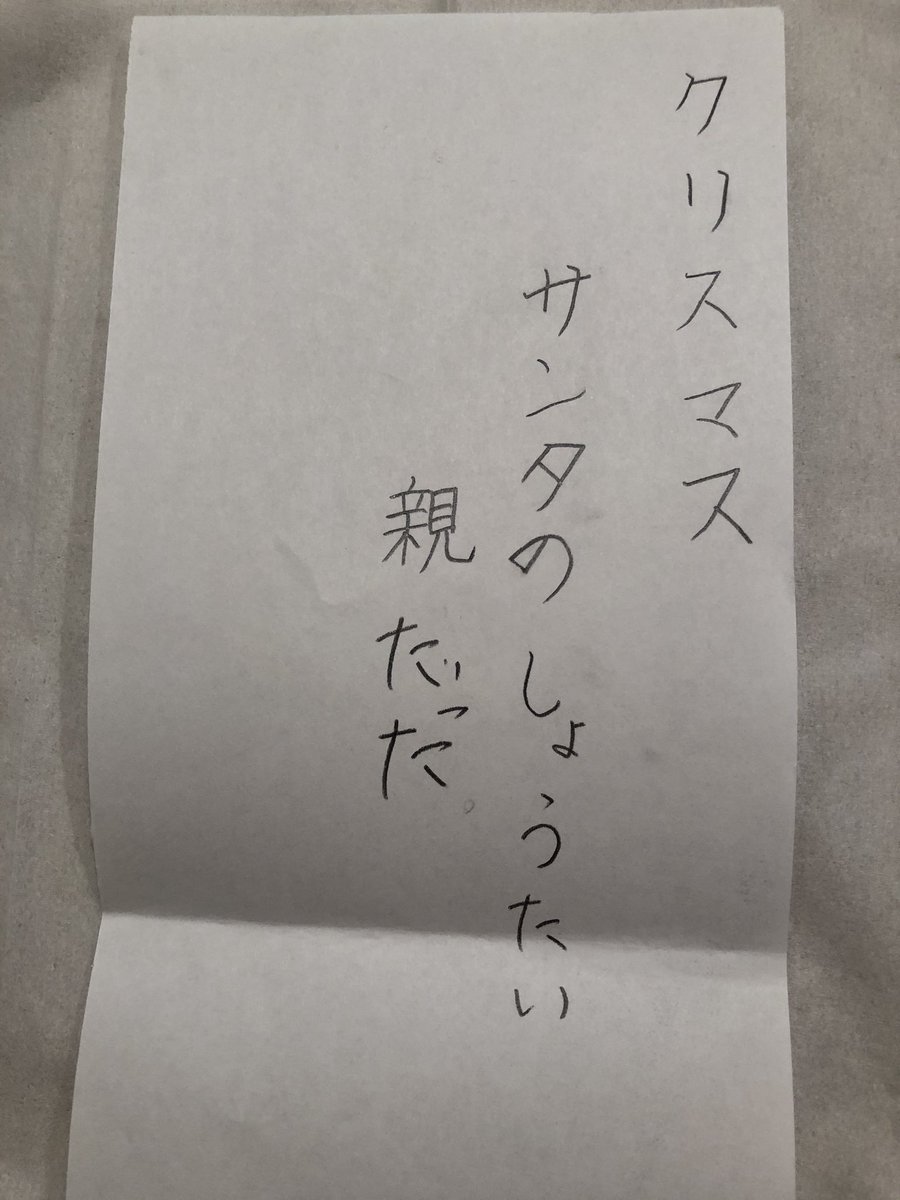 クリスマス
サンタのしょうたい
親だった